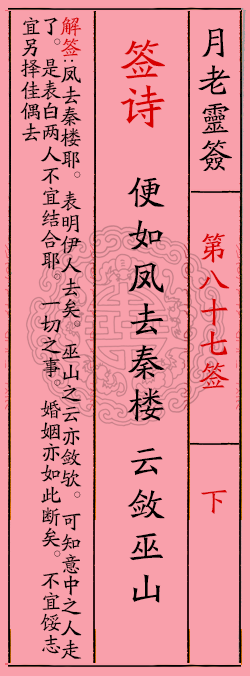 月老靈簽
第八十七签
下
签诗
便如凤去秦楼 云敛巫山
解签:凤去秦楼耶。表明伊人去矣。巫山之云亦敛欤。可知意中之人走
了。是表白两人不宜结合耶。一切之事。婚姻亦如此断矣。不宜馁志
宜另择佳偶去